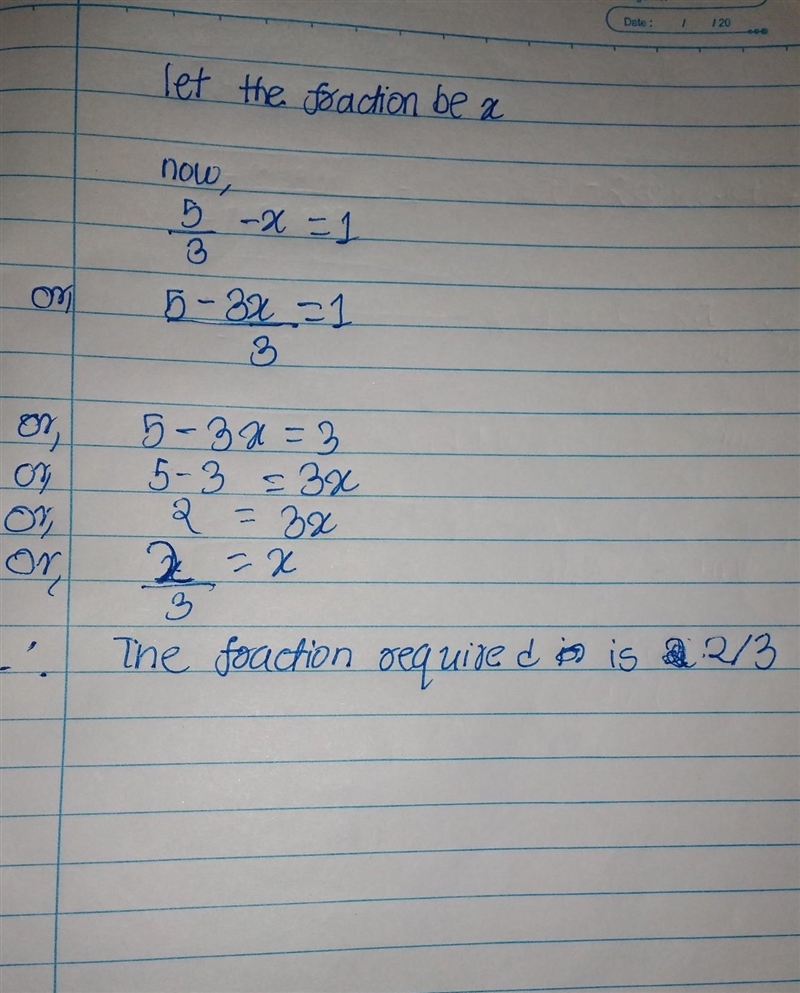 Date :    /    / 20
let the fraction be x
now,
5/3 - x = 1
or, 5 - 3x/3 = 1
or, 5 - 3x = 3
or, 5 - 3 = 3x
or, 2 = 3x
or, 2/3 = x
∴ The fraction required is 2/3